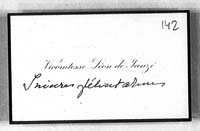 142
Vicomtesse Léon de Janzé
Sincères félicitations